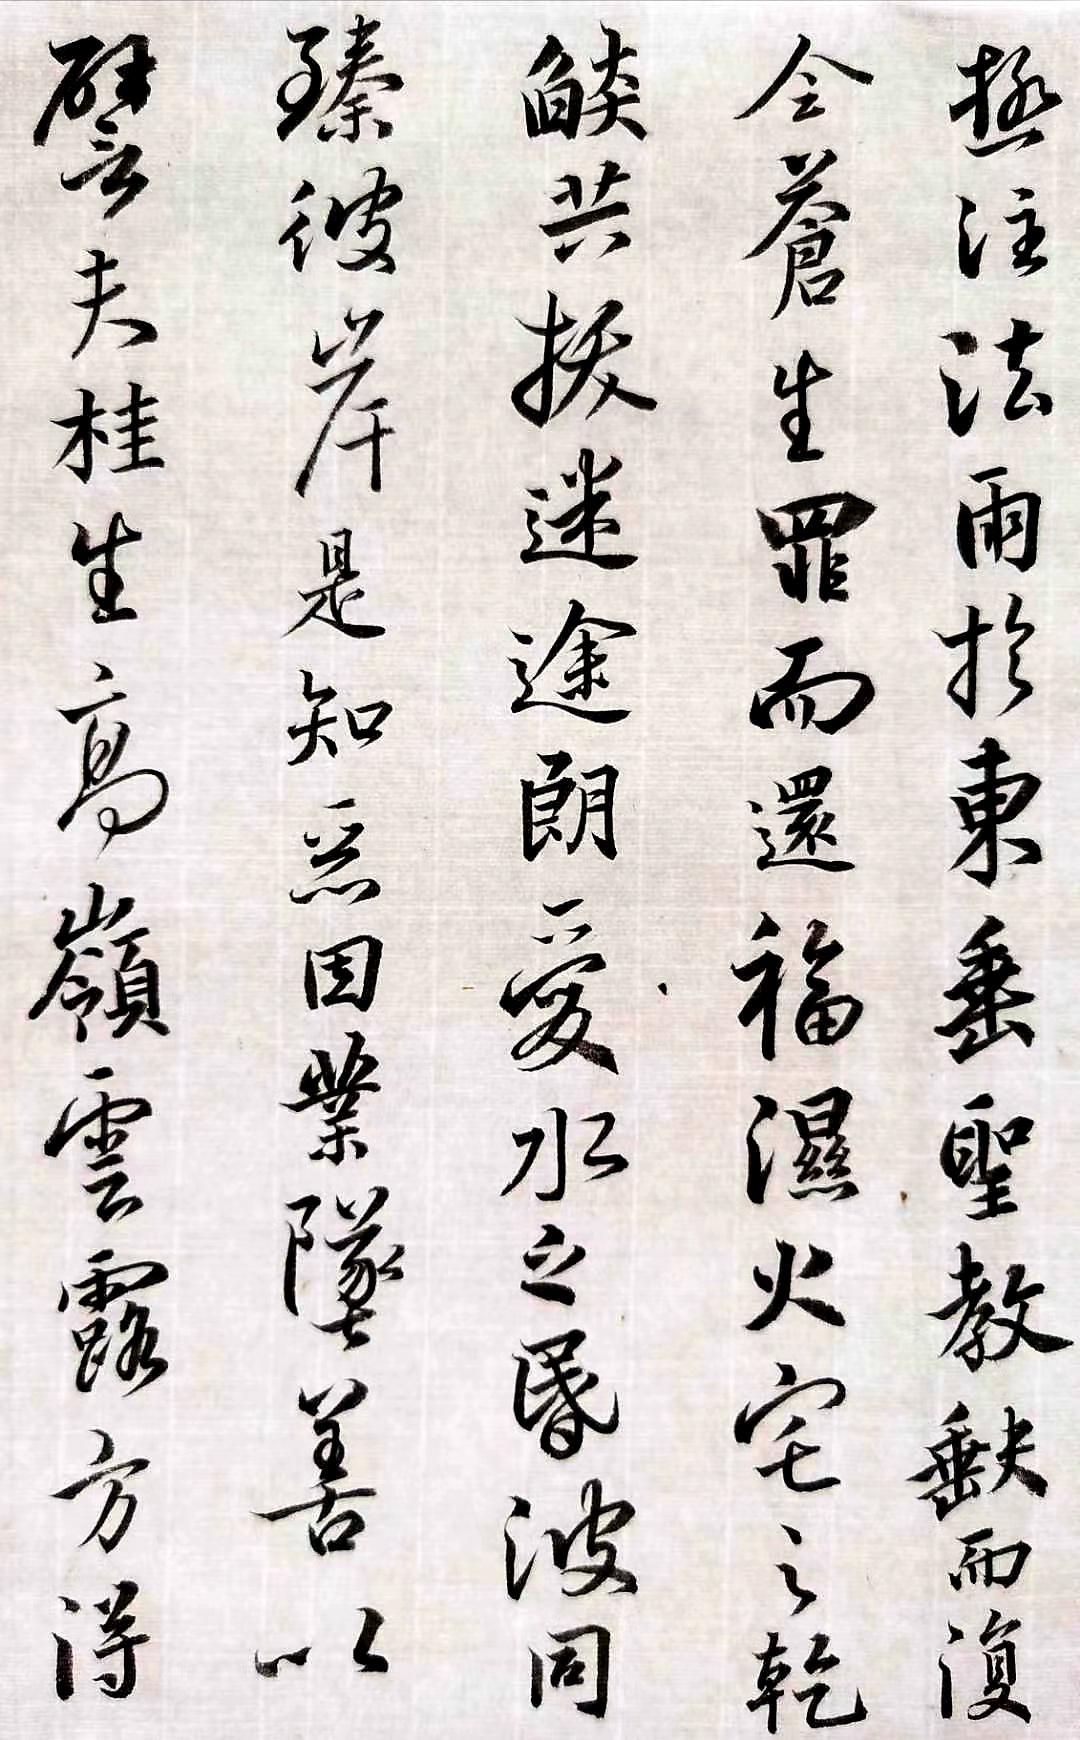 拯注法雨於東垂聖教缺而復
全蒼生罪而還福濕火宅之乾
燄共拔迷途朗愛水之昏波同
臻彼岸是知惡因業墜善以
譬夫桂生高嶺雲露方得